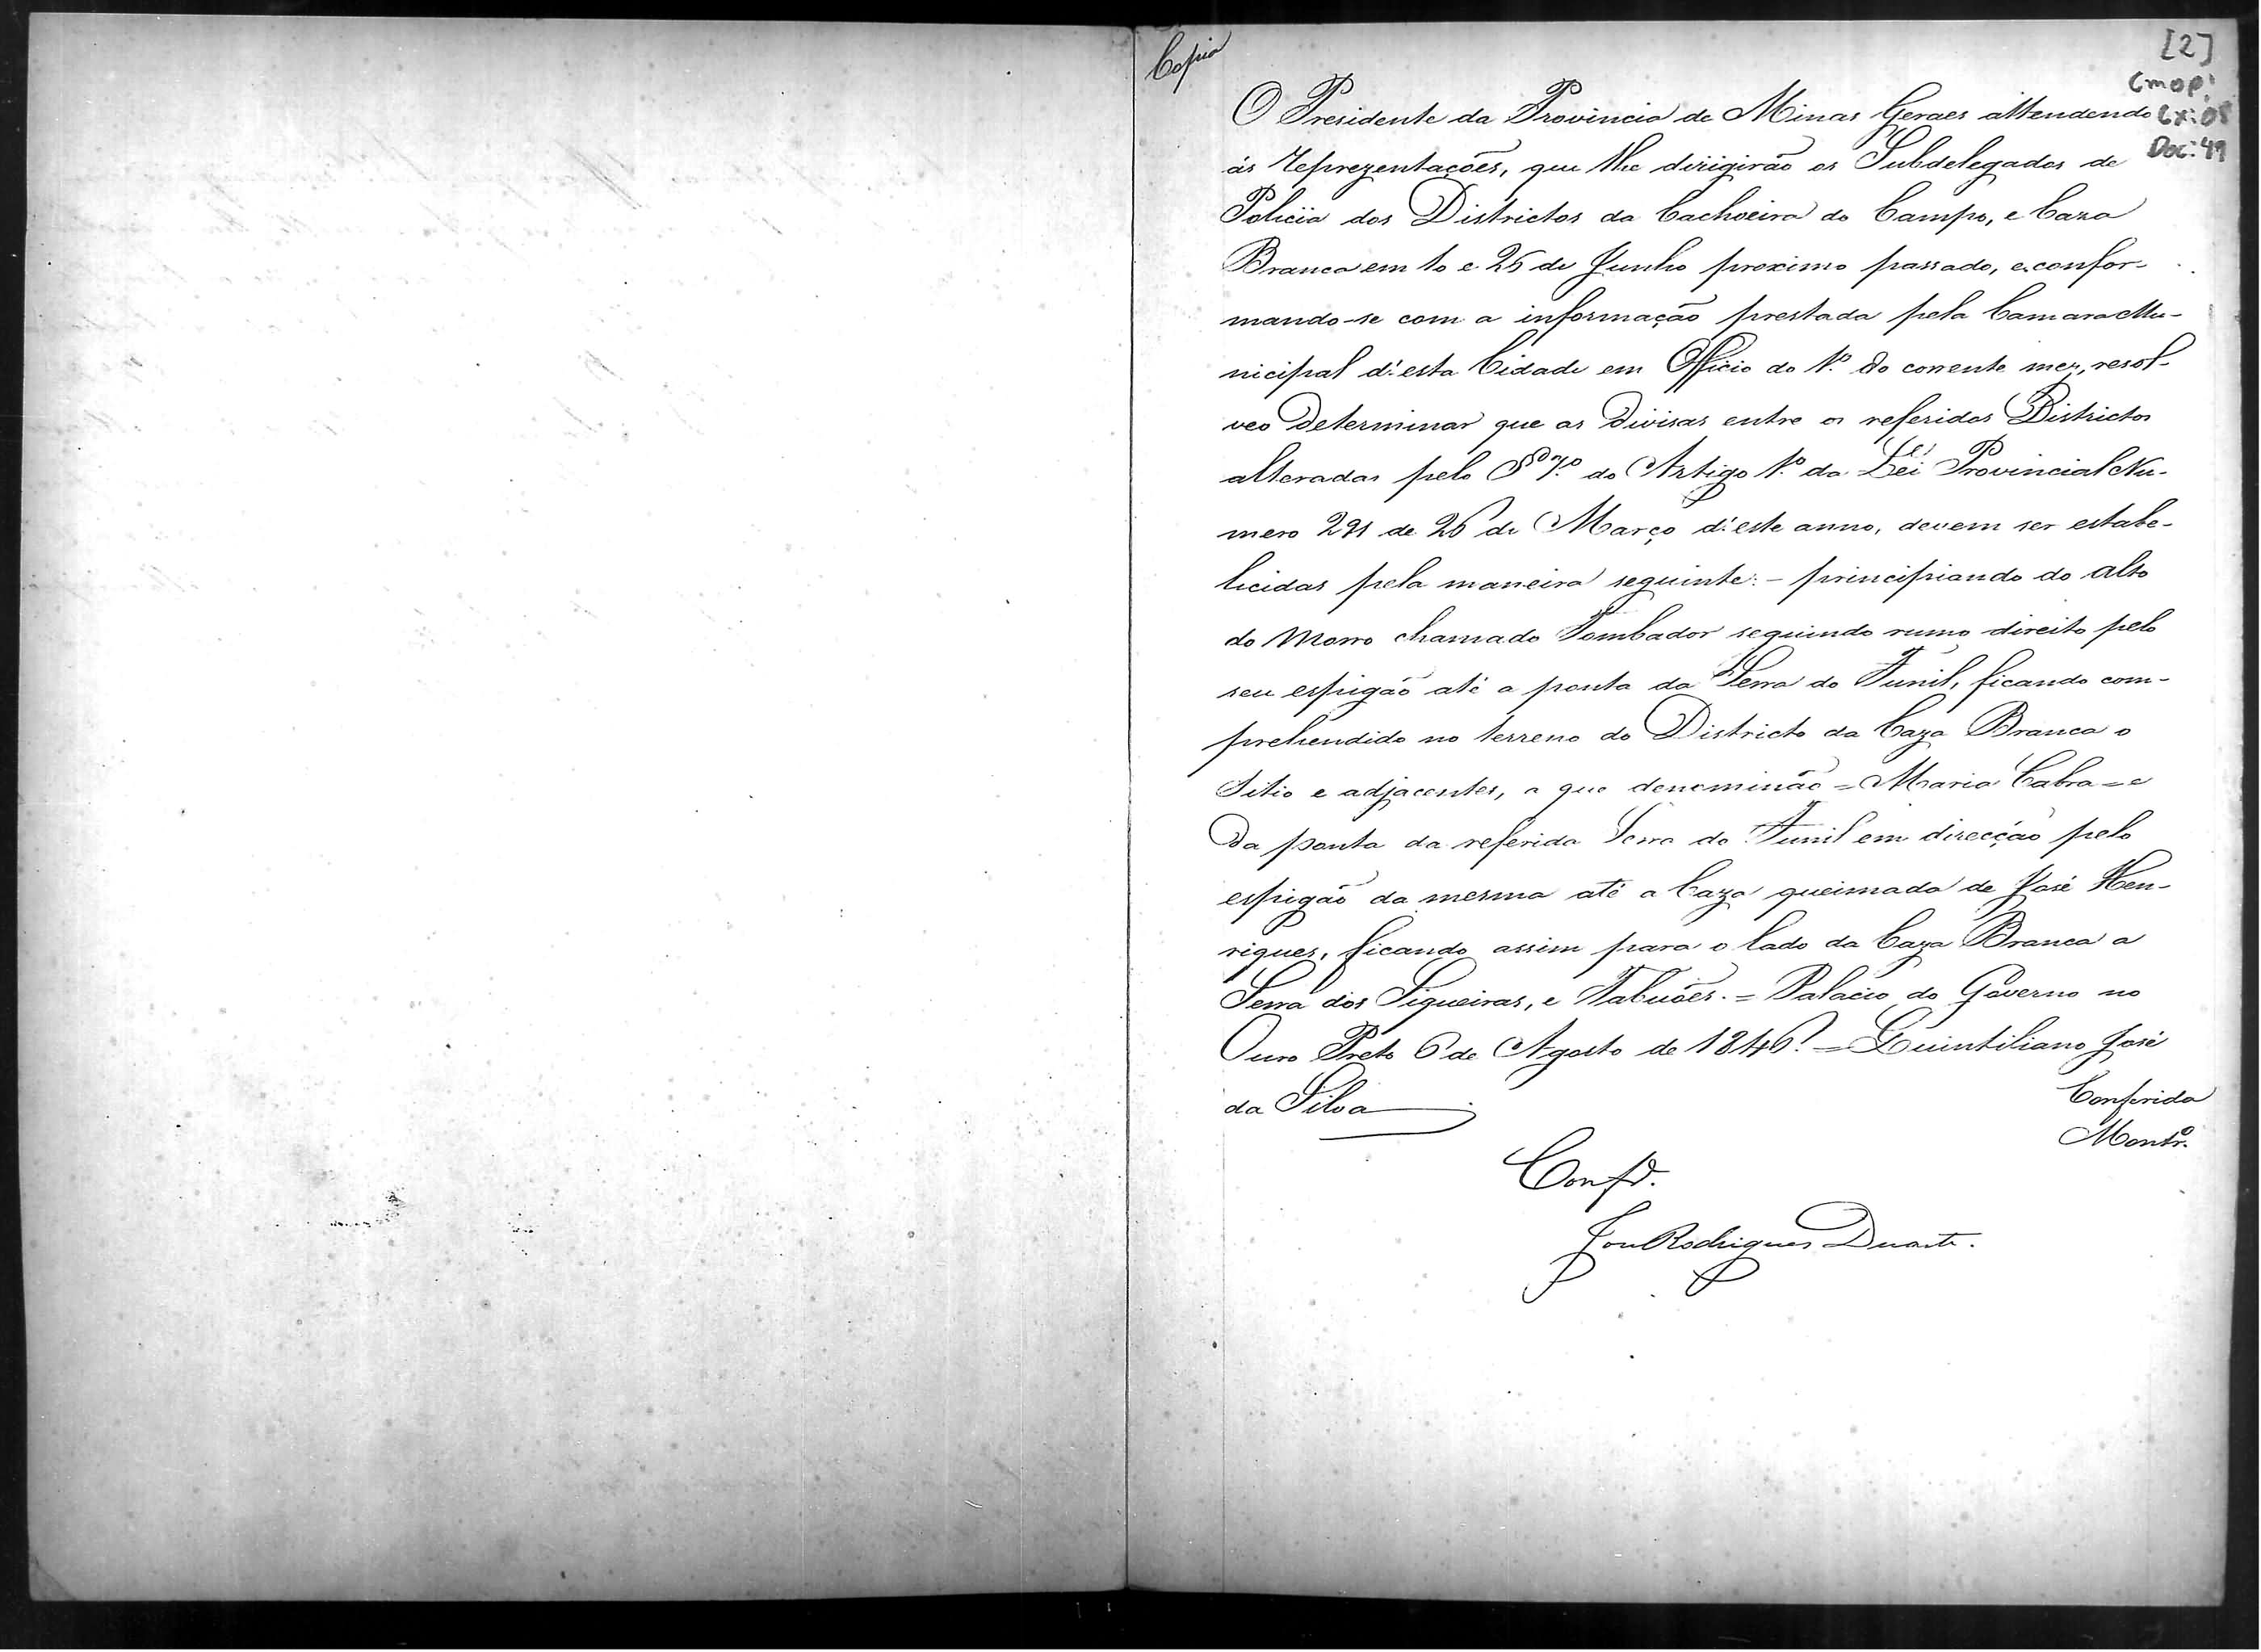 Copia
[2]
CMOP:
Cx: 08
Doc: 49
O Presidente da Provincia de Minas Geraes attendendo
ás reprezentações, que lhe dirigirão os Subdelegados de
Policia dos Districtos da Cachoeira do Campo, e Caza
Branca em 10 e 26 de Junho proximo passado, e confor-
mando-se com a informação prestada pela Camara Mu-
nicipal d'esta Cidade em Officio do 1.º do corrente mez, resol-
veo determinar que as divisas entre os referidos Districtos
alteradas pelo § 7.º do Artigo 1.º da Lei Provincial Nu-
mero 291 de 26 de Março d'este anno, devem ser estabe-
licidas pela maneira seguinte: - principiando do alto
do Morro chamado Tombador seguindo rumo direito pelo
seu espigão até a ponta da Serra do Funil, ficando com-
prehendido no terreno do Districto da Caza Branca o
Sitio e adjacentes, a que denominão = Maria Cabra = e
da ponta da referida Serra do Funil em direcção pelo
espigão da mesma até a Caza queimada de José Hen-
riques, ficando assim para o lado da Caza Branca a
Serra dos Siqueiras, e Tabuões. = Palacio do Governo no
Ouro Preto 6 de Agosto de 1846. = Quintiliano José
da Silva
Conferida
Montr.º
Conf.
José Rodrigues Duarte.